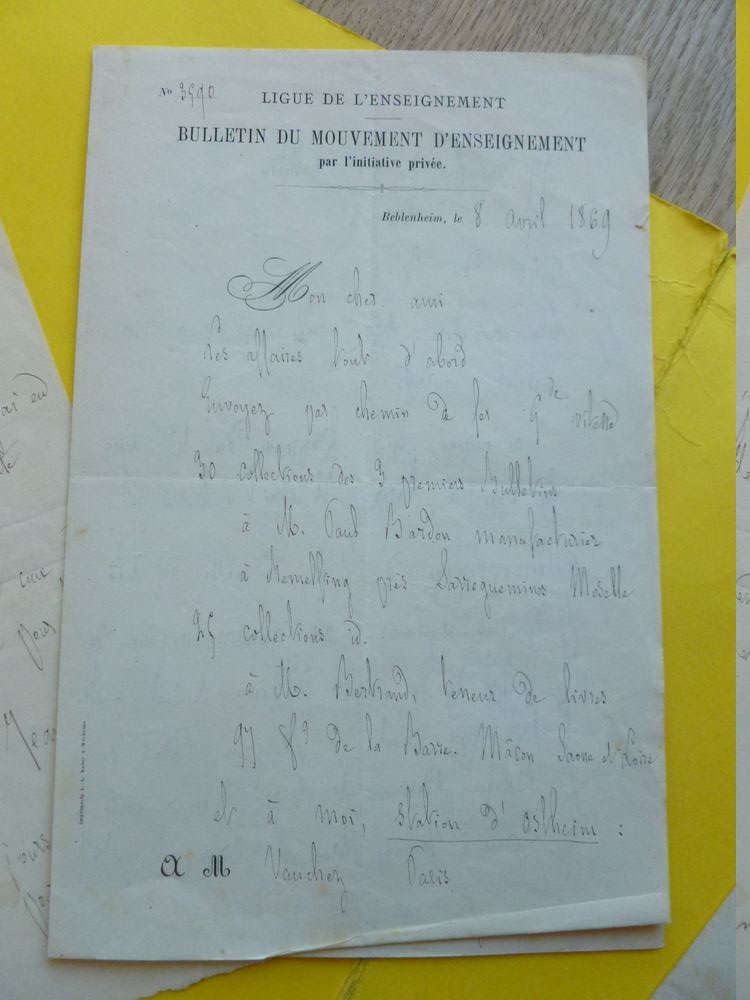 No 3590
LIGUE DE L'ENSEIGNEMENT
BULLETIN DU MOUVEMENT D'ENSEIGNEMENT
par l'initiative privée.
Beblenheim, le 8 avril 1869
Mon cher ami
Les affaires tout d'abord
Envoyez par chemin de fer Gde vitesse
30 collections des 3 premiers Bulletins
à M. Paul Bardon manufacturier
à Remelfing près Sarreguemines Moselle
25 collections id.
à M. Bertrand, teneur de livres
97 fg de la Barre. Mâcon Saone et Loire
et à moi, station d'Ostheim :
A M Vauchez Paris